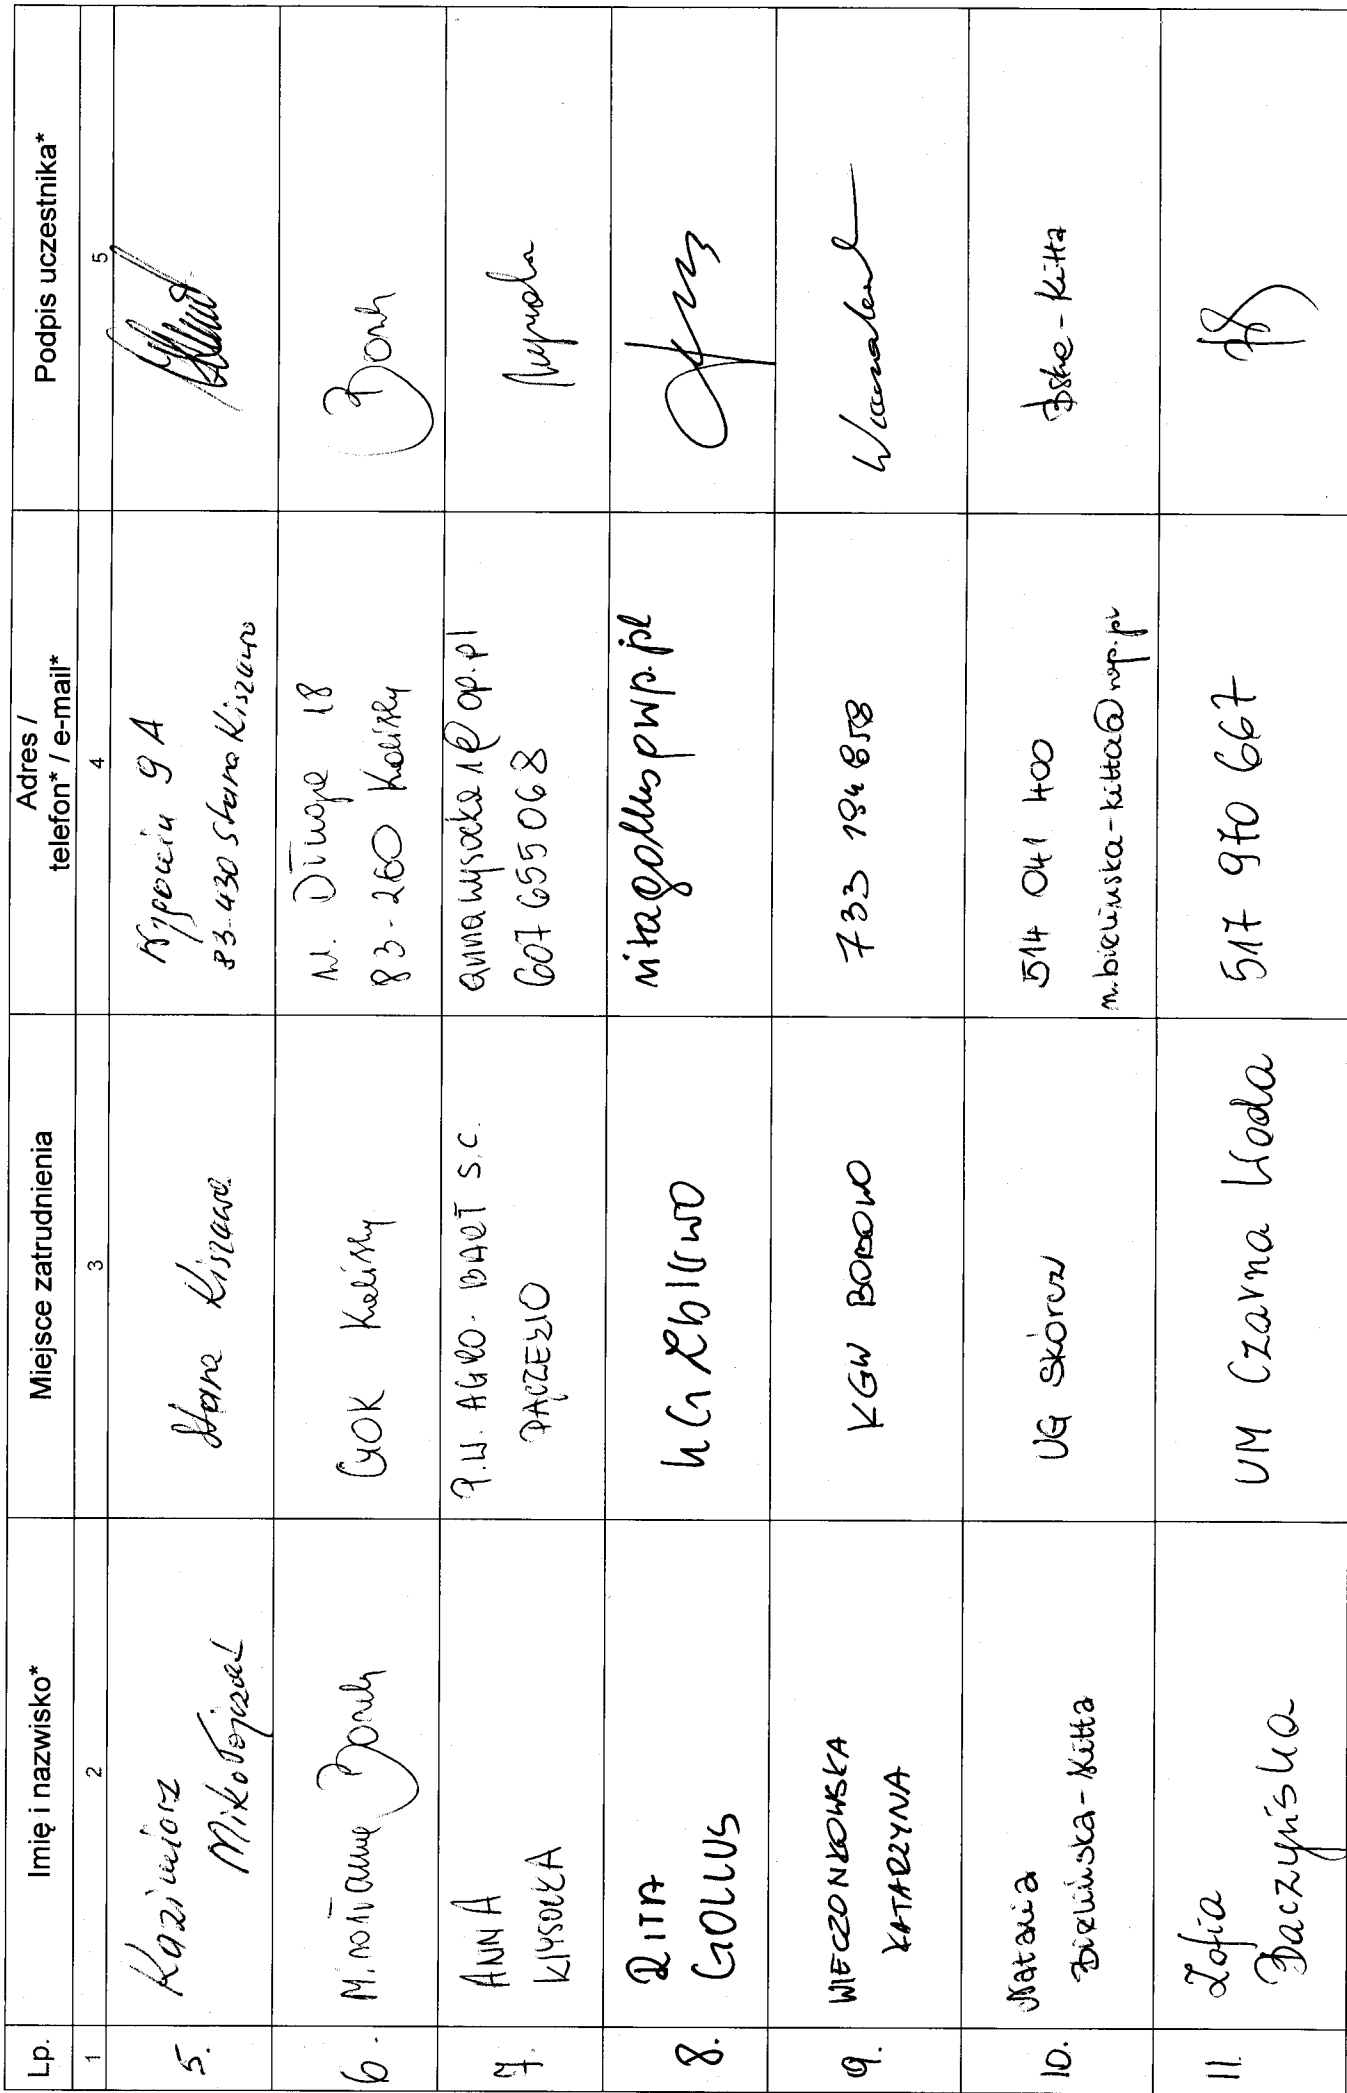 Lp. Imię i nazwisko* Miejsce zatrudnienia Adres / telefon* / e-mail* Podpis uczestnika*
1 2 3 4 5
5. Kazimierz Mikołajczak Stara Kiszewa Wygonin 9A
83-430 Stara Kiszewa
6. Mirosława Bonk GOK Kaliska ul. Długa 18
83-260 Kaliska Bonk
7. ANNA WYSOCKA P.W. AGRO-BART S.C. annawysocka1@op.pl
607 655 068 Wysocka
8. RITA GOLLUS UG Zblewo ritagollus@wp.pl
9. WIECZORKOWSKA KATARZYNA KGW BOBOWO 733 194 858
10. Natania Bielińska-Kitta UG Skórcz 514 041 400
n.bielinska-kitta@wp.pl
11. Zofia Daczyńska UM Czarna Woda 517 970 667